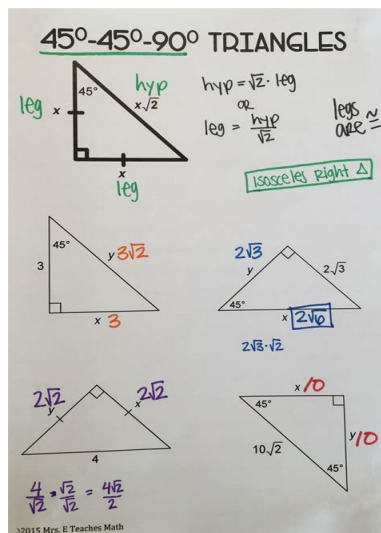 45°-45°-90° TRIANGLES
hyp
45°
x√2
leg x
x
leg
hyp = √2 · leg
OR
leg = hyp/√2
legs
are ≅
Isosceles Right △
45°
3
y 3√2
x 3
2√3
y
2√3
45°
x 2√6
2√3·√2
2√2
y
x
2√2
4
4/√2 · √2/√2 = 4√2/2
x 10
45°
y 10
10√2
45°
©2015 Mrs. E Teaches Math